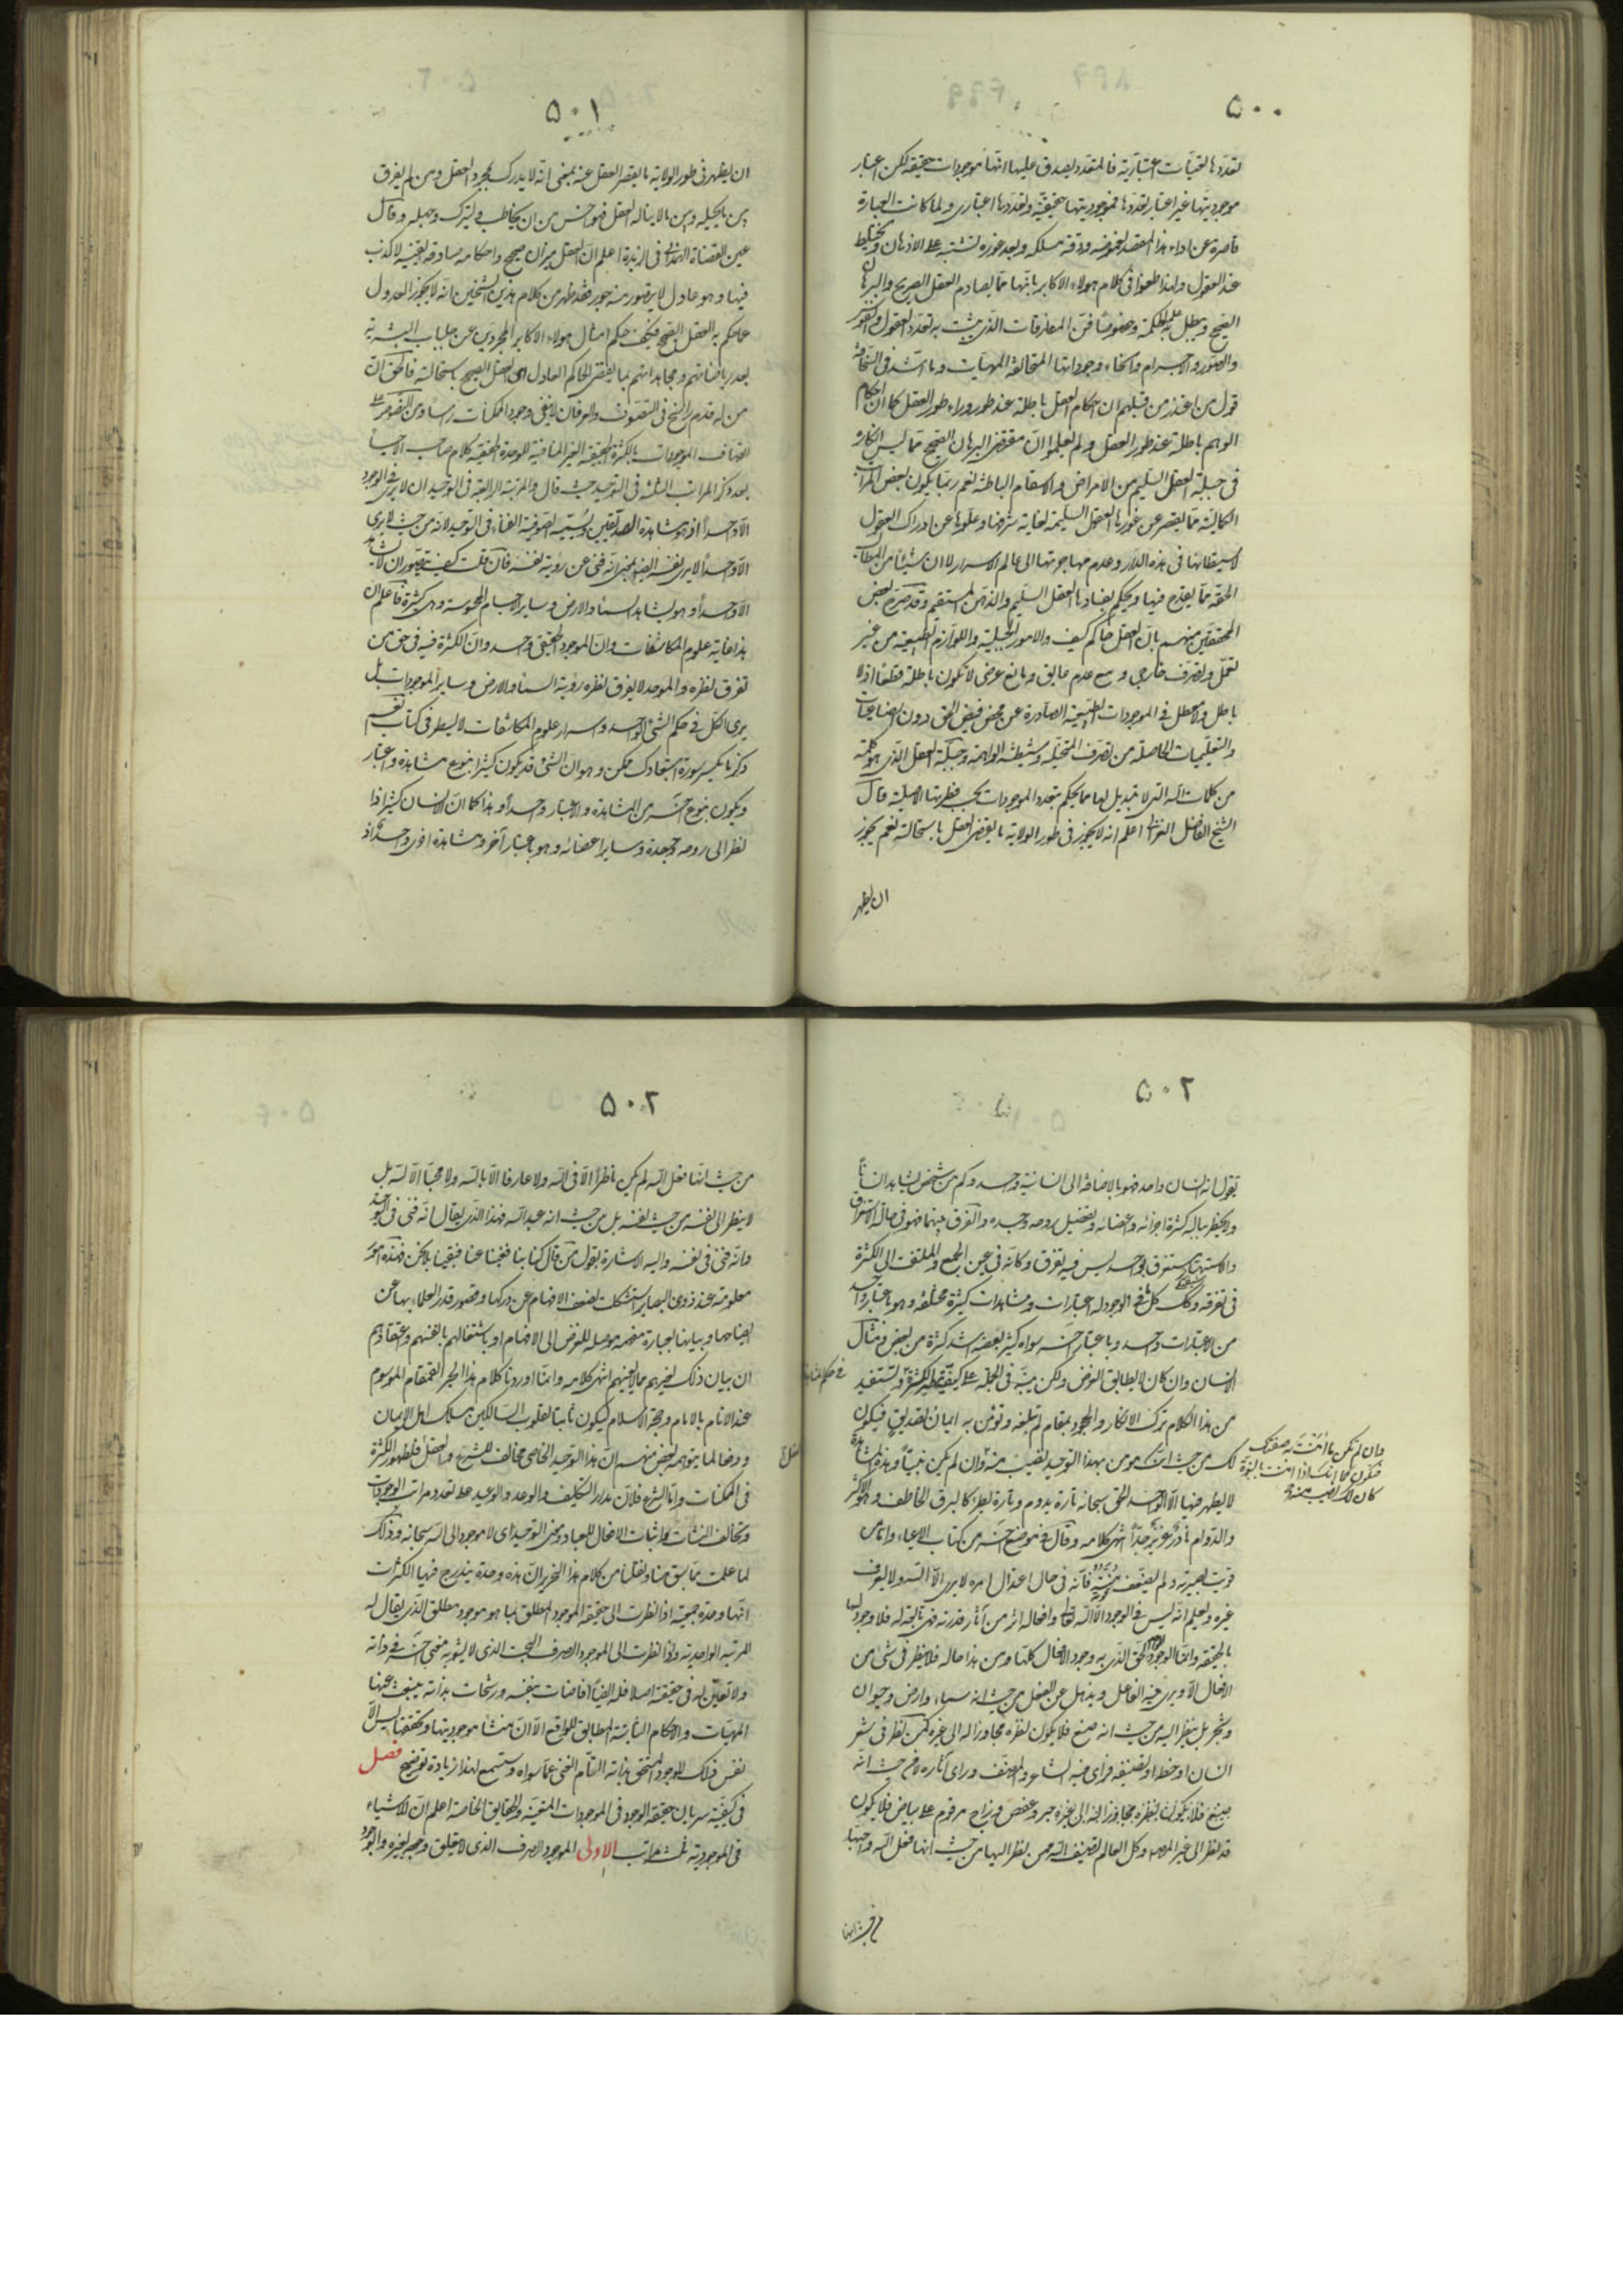 ۵۰۰
تعددها لتعينات اعتبارية فالمتعدد يصدق عليها انها موجودات حقيقة لكن اعتبار
موجوديتها غير اعتبار تعددها فموجوديتها حقيقية وتعددها اعتباري ولما كانت العبارة
قاصرة عن اداء هذا المقصد لغموضه ودقة مسلكه وبعد غوره يشتبه على الاذهان ويختلط
عند العقول ولهذا طعنوا في كلام هولاء الاكابر بانها مما يصادم العقل الصريح والبرهان
الصحيح ويبطل به علم الحكمة وخصوصا فن المفارقات الذي يثبت به تعدد العقول والنفوس
والصور والاجرام وانحاء وجوداتها المتخالفة المهيات وما اشد في السخافة
قول من اعتذر من قبلهم ان احكام العقل باطلة عند طور وراء طور العقل كما ان احكام
الوهم باطلة عند طور العقل ولم يعلموا ان مقتضى البرهان الصحيح مما ليس انكاره
في جبلة العقل السليم من الامراض والاسقام الباطنة نعم ربما يكون بعض المراتب
الكمالية مما يقصر عن غورها العقول السليمة لغاية شرفها وعلوها عن ادراك العقول
لاستيطانها في هذه الدار وعدم مهاجرتها الى عالم الاسرار لا ان شيئا من المطالب
الحقة مما يقدح فيها ويحكم بفسادها العقل السليم والذهن المستقيم وقد صرح بعض
المحققين منهم بان العقل حاكم كيف والامور الجبلية واللوازم الطبيعية من غير
تعمل وتصرف خارجي ومع عدم عايق ومانع عرضي لا تكون باطلة قطعا اذ لا
باطل ولا معطل في الموجودات الطبيعية الصادرة عن محض فيض الحق دون الصناعيات
والتعليميات الحاصلة من تصرف المتخيلة وشيطنة الواهمة وجبلة العقل الذي هو كلمة
من كلمات الله التي لا تبديل لها مما يحكم بتعدد الموجودات بحسب فطرتها الاصلية قال
الشيخ الفاضل الغزالي اعلم انه لا يجوز في طور الولاية ما يقضي العقل باستحالته نعم يجوز
ان يظهر
۵۰۱
ان يظهر في طور الولاية ما يقصر العقل عنه بمعنى انه لا يدرك بمجرد العقل ومن لم يفرق
بين ما يحيله وبين ما لا يناله العقل فهو اخس من ان يخاطب فيترك وجهله وقال
عين القضاة الهمداني في الزبدة اعلم ان العقل ميزان صحيح واحكامه صادقة يقينية لا كذب
فيها وهو عادل لا يتصور منه جور فقد ظهر من كلام هذين الشيخين انه لا يجوز العدول
عما حكم به العقل الصحيح فكيف حكم امثال هولاء الاكابر المجردين عن جلباب البشرية
بعد رياضاتهم ومجاهداتهم بما يقضي الحاكم العادل اي العقل الصحيح باستحالته فالحق ان
من له قدم راسخ في التصوف والعرفان لا ينفي وجود الممكنات راسا ومن النصوص على
اتصاف الموجودات بالكثرة الحقيقية الغير المنافية للوحدة الحقيقية كلام صاحب الاحياء
بعد ذكر المراتب الثلثة في التوحيد حيث قال والمرتبة الرابعة في التوحيد ان لا يرى في الوجود
الا واحدا وهو مشاهدة الصديقين ويسميه الصوفية الفناء في التوحيد لانه من حيث لا يرى
الا واحدا لا يرى نفسه ايضا بمعنى انه فنى عن رؤية نفسه فان قلت كيف يتصور ان لا يشاهد
الا واحدا وهو يشاهد السماء والارض وساير الاجسام المحسوسة وهي كثيرة فاعلم ان
هذا غاية علوم المكاشفات وان الموجود الحقيقي واحد وان الكثرة فيه في حق من
تفرق نظره والموحد لا يفرق نظره رؤية السماء والارض وساير الموجودات بل
يرى الكل في حكم الشئ الواحد واسرار علوم المكاشفات لا يسطر في كتاب نعم
ذكر ما يكسر سورة استبعادك ممكن وهو ان الشئ قد يكون كثيرا بنوع مشاهدة واعتبار
ويكون بنوع اخر من المشاهدة والاعتبار واحدا وهذا كما ان الانسان كثير اذا
نظر الى روحه وجسده وساير اعضائه وهو باعتبار آخر ومشاهدة اخرى واحد اذ
۵۰۲
نقول انه انسان واحد فهو بالاضافة الى الانسانية واحد وكم من شخص يشاهد انسانا
ولا يخطر بباله كثرة اجزائه واعضائه وتفصيل روحه وجسده والفرق بينهما فهو في حالة الاستغراق
والاستهتار مستغرق واحد ليس فيه تفرق وكانه في عين الجمع والملتفت الى الكثرة
في تفرقة وكذلك كل ما في الوجود له اعتبارات ومشاهدات كثيرة مختلفة وهو باعتبار واحد
من الاعتبارات واحد وباعتبار اخر سواه كثير بعضه اشد كثرة من بعض ومثال
الانسان وان كان لا يطابق الغرض ولكن ينبه في الجملة على كيفية الكثرة وتستفيد
في حكم المشاهدة
من هذا الكلام ترك الانكار والجحود بمقام لم تبلغه وتؤمن به ايمان تصديق فيكون
لك من حيث انك مؤمن بهذا التوحيد نصيب منه وان لم يكن نبيا وهذه المشاهدة
وان لم تكن ما آمنت به صفتك
فتكون كما انك اذا آمنت بالنبوة
كان لك نصيب منه
لا يظهر فيها الا الواحد الحق سبحانه تارة يدوم وتارة يطرء كالبرق الخاطف وهو الاكثر
والدوام نادر عزيز جدا انتهى كلامه وقال في موضع اخر من كتاب الاحياء واما من
قويت بصيرته ولم يضعف منته فانه في حال اعتدال امره لا يرى الا الله ولا يعرف
غيره ويعلم انه ليس في الوجود الا الله تعالى وافعاله اثر من آثار قدرته فهي تابعة له فلا وجود لها
بالحقيقة وانما الوجود للواحد الحق الذي به وجود الافعال كلها ومن هذا حاله فلا ينظر في شئ من
الافعال الا ويرى فيه الفاعل ويذهل عن الفعل من حيث انه سماء وارض وحيوان
وشجر بل ينظر اليه من حيث انه صنع فلا يكون نظره مجاوزا له الى غيره كمن نظر في شعر
انسان او خطه او تصنيفه فراى فيه الشاعر والمصنف وراى آثاره من حيث انه
صنع فلا يكون نظره مجاوزا له الى غيره حبر وعفص وزاج مرقوم على بياض فلا يكون
قد نظر الى غير المصنف وكل العالم تصنيف الله فمن نظر اليها من حيث انها فعل الله واحبها
من حيث انها
۵۰۳
من حيث انها فعل الله لم يكن ناظرا الا في الله ولا عارفا الا بالله ولا محبا الا لله بل
لا ينظر الى نفسه من حيث نفسه بل من حيث انه عبد الله فهذا الذي يقال انه فنى في التوحيد
وانه فنى في نفسه واليه الاشارة بقول من قال كنا بنا ففنينا عنا فبقينا بلا نحن فهذه امور
معلومة عند ذوي البصائر استشكلت لضعف الافهام عن دركها وقصور قدر العلماء بها عن
ايضاحها وبيانها بعبارة مفهمة موصلة للغرض الى الافهام او باشتغالهم بانفسهم واعتقادهم
ان بيان ذلك لغيرهم مما لا يعنيهم انتهى كلامه وانما اوردنا كلام هذا البحر القمقام الموسوم
عند الانام بالامام وحجة الاسلام ليكون تليينا لقلوب السالكين مسلك اهل الايمان
ودفعا لما يتوهم بعض منهم ان هذا التوحيد الخاصي مخالف للشرع والعقل فلظهور الكثرة
في الممكنات واما الشرع فلان مدار التكليف والوعد والوعيد على تعدد مراتب الموجودات
وتخالف النشات واثبات الافعال للعباد ومعنى التوحيد ان لا موجود الا الله سبحانه وذلك
لما علمت مما سبق منا ونقلنا من كلام هذا النحرير ان هذه وحدة يندرج فيها الكثرات
انها وحدة جمعية اذا نظرت الى حقيقة الموجود المطلق بما هو موجود مطلق الذي يقال له
المرتبة الواحدية واذا نظرت الى الموجود الصرف البحت الذي لا يشوبه معنى اخر في ذاته
ولا تعين له في حقيقته اصلا فله ايضا افاضات بنفسه ورشحات بذاته ينبعث عنها
المهيات والاحكام الثابتة المطابق للواقع الا ان منشا موجوديتها وتحققها ليس الا
نفس ذلك الموجود المتحقق بذاته التام الغني عما سواه وستسمع لهذا زيادة توضيح فصل
في كيفية سريان حقيقة الوجود في الموجودات المتعينة والحقايق الخاصة اعلم ان للاشياء
في الموجودية ثلث مراتب الاولى الموجود الصرف الذي لا يتعلق وجوده بغيره والوجود